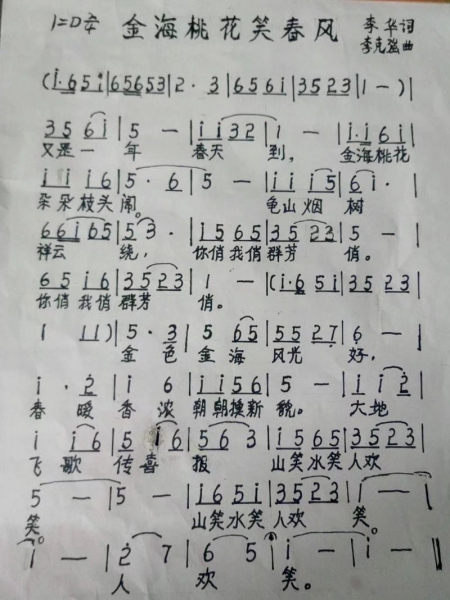 1=D 2/4 金海桃花笑春风 李华词
李克强曲
(i·65i|65653|2·3|656i|3523|1-)|
356i|5-|ii32|1-|i·i6i|
又是一年 春天到, 金海桃花
iii6|5·6|5-|iii5|6i·|
朵朵枝头闹。 龟山烟树
66i65|53·|i565|3523|5-|
祥云绕, 你俏我俏群芳俏。
65i6|3523|1-|(i·65i|3523|
你俏我俏群芳俏。
1 11)|5·3|5 65|5527|6-|
金色金海风光好,
i·2|i6|ii56|5-|ii2|
春暖香浓朝朝换新貌。大地
i i6|5 i6|56 3|i565|3523|
飞歌传喜报 山笑水笑人欢
5-|5-|i65i|3523|i-|
笑。 山笑水笑人欢笑。
i-|2 7|6 5|i-|i-‖
人欢笑。